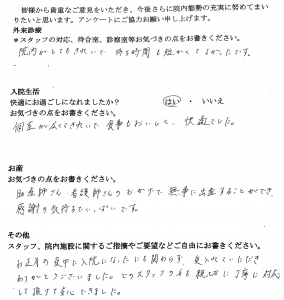 皆様から貴重なご意見をいただき、今後さらに院内態勢の充実に努めてまい
りたいと思います。アンケートにご協力お願い申し上げます。
外来診療
*スタッフの対応、待合室、診察室等お気づきの点をお書きください。
院内がとてもきれいで 待ち時間も短かくてよかったです。
入院生活
快適にお過ごしになれましたか? はい ・ いいえ
お気づきの点をお書きください。
個室が広くてきれいで食事もおいしく、快適でした。
お産
お気づきの点をお書きください。
助産師さん・看護師さんのおかげで無事に出産することができ、
感謝の気持ちでいっぱいです。
その他
スタッフ、院内施設に関するご指摘やご要望などご自由にお書きください。
お正月の夜中に入院になったにも関わらず、受入れていただき
ありがとうございました。どのスタッフの方も親切に丁寧に対応
して頂けて安心できました。